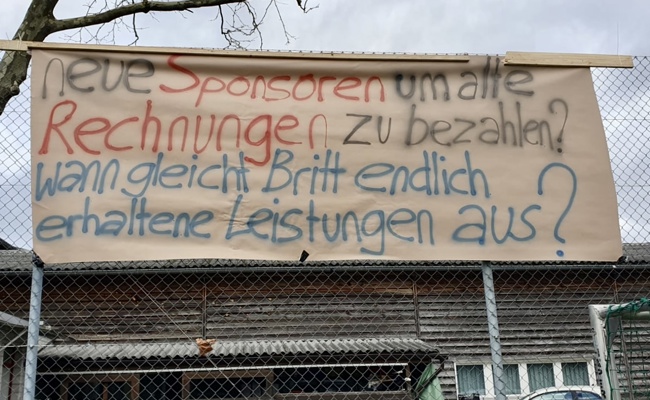 neue Sponsoren um alte
Rechnungen zu bezahlen?
wann gleicht Britt endlich
erhaltene Leistungen aus?